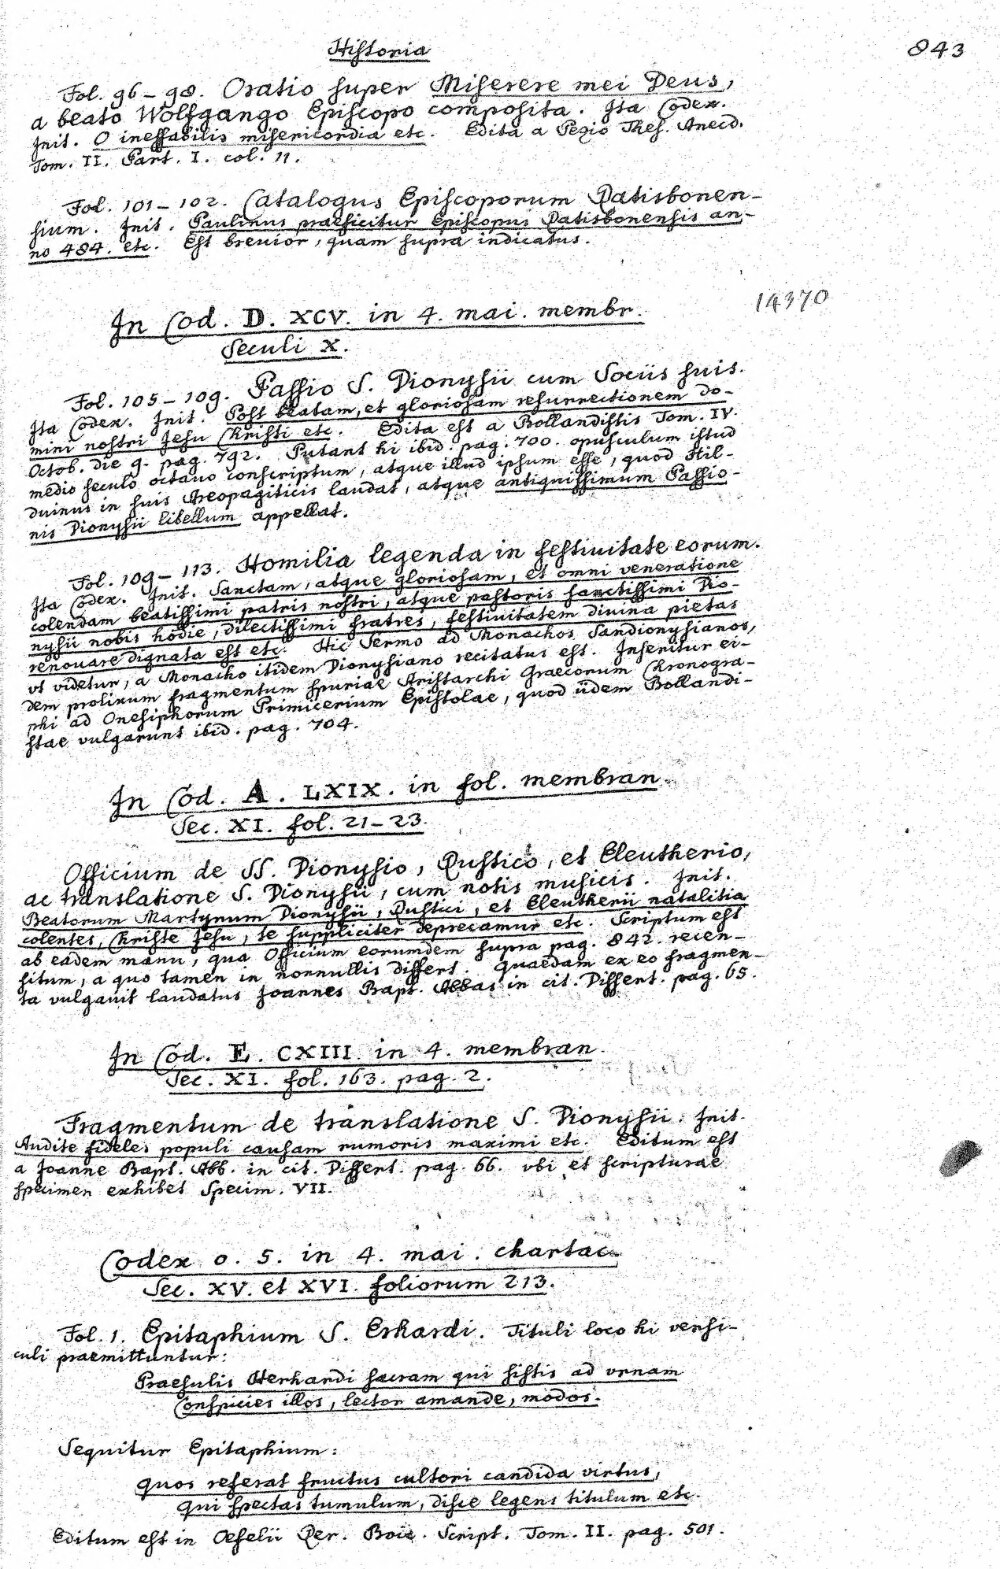 Historia
843
Fol. 96-98. Oratio super Miserere mei Deus,
a beato Wolfgango Episcopo composita. Ita Codex.
Init. O ineffabilis misericordia etc. Edita a Pezio Thes. Anecd.
Tom. II. Part. I. col. 11.
Fol. 101-102. Catalogus Episcoporum Ratisbonen-
sium. Init. Paulinus praeficitur Episcopus Ratisbonensis an-
no 484. etc. Est brevior, quam supra indicatus.
In Cod. D. XCV. in 4. mai. membr.
14370
Seculi X.
Fol. 105-109. Passio S. Dionysii cum Sociis suis.
Ita Codex. Init. Post beatam, et gloriosam resurrectionem do-
mini nostri Jesu Christi etc. Edita est a Bollandistis Tom. IV.
Octob. die 9. pag. 792. Putant hi ibid. pag. 700. opusculum istud
medio seculo octavo conscriptum, atque illud ipsum esse, quod Hil-
duinus in suis Areopagiticis laudat, atque antiquissimum Passio-
nis Dionysii libellum appellat.
Fol. 109-113. Homilia legenda in festiuitate eorum.
Ita Codex. Init. Sanctam, atque gloriosam, et omni veneratione
colendam beatissimi patris nostri, atque pastoris sanctissimi Dio-
nysii nobis hodie, dilectissimi fratres, festiuitatem diuina pietas
renouare dignata est etc. Hic Sermo ad Monachos Sandionysianos,
vt videtur, a Monacho itidem Dionysiano recitatus est. Inseritur ei-
dem prolixum fragmentum spuriae Aristarchi Graecorum Chronogra-
phi ad Onesiphorum Primicerium Epistolae, quod iidem Bollandi-
stae vulgarunt ibid. pag. 704.
In Cod. A. LXIX. in fol. membran.
Sec. XI. fol. 21-23.
Officium de SS. Dionysio, Rustico, et Eleutherio,
ac translatione S. Dionysii, cum notis musicis. Init.
Beatorum Martyrum Dionysii, Rustici, et Eleutherii natalitia
colentes, Christe Jesu, te suppliciter deprecamur etc. Scriptum est
ab eadem manu, qua Officium eorumdem supra pag. 842. recen-
situm, a quo tamen in nonnullis differt. Quaedam ex eo fragmen-
ta vulgauit laudatus Joannes Bapt. Abbas in cit. Dissert. pag. 65.
In Cod. E. CXIII. in 4. membran.
Sec. XI. fol. 163. pag. 2.
Fragmentum de translatione S. Dionysii. Init.
Audite fideles populi causam rumoris maximi etc. Editum est
a Joanne Bapt. Abb. in cit. Dissert. pag. 66. vbi et scripturae
specimen exhibet Specim. VII.
Codex O. 5. in 4. mai. chartac.
Sec. XV. et XVI. foliorum 213.
Fol. 1. Epitaphium S. Erhardi. Tituli loco hi versi-
culi praemittuntur:
Praesulis Herhardi sacram qui sistis ad vrnam
Conspicies illos, lector amande, modos.
Sequitur Epitaphium:
Quos referat fructus cultori candida virtus,
Qui spectas tumulum, disce legens titulum etc.
Editum est in Oefelii Rer. Boic. Script. Tom. II. pag. 501.